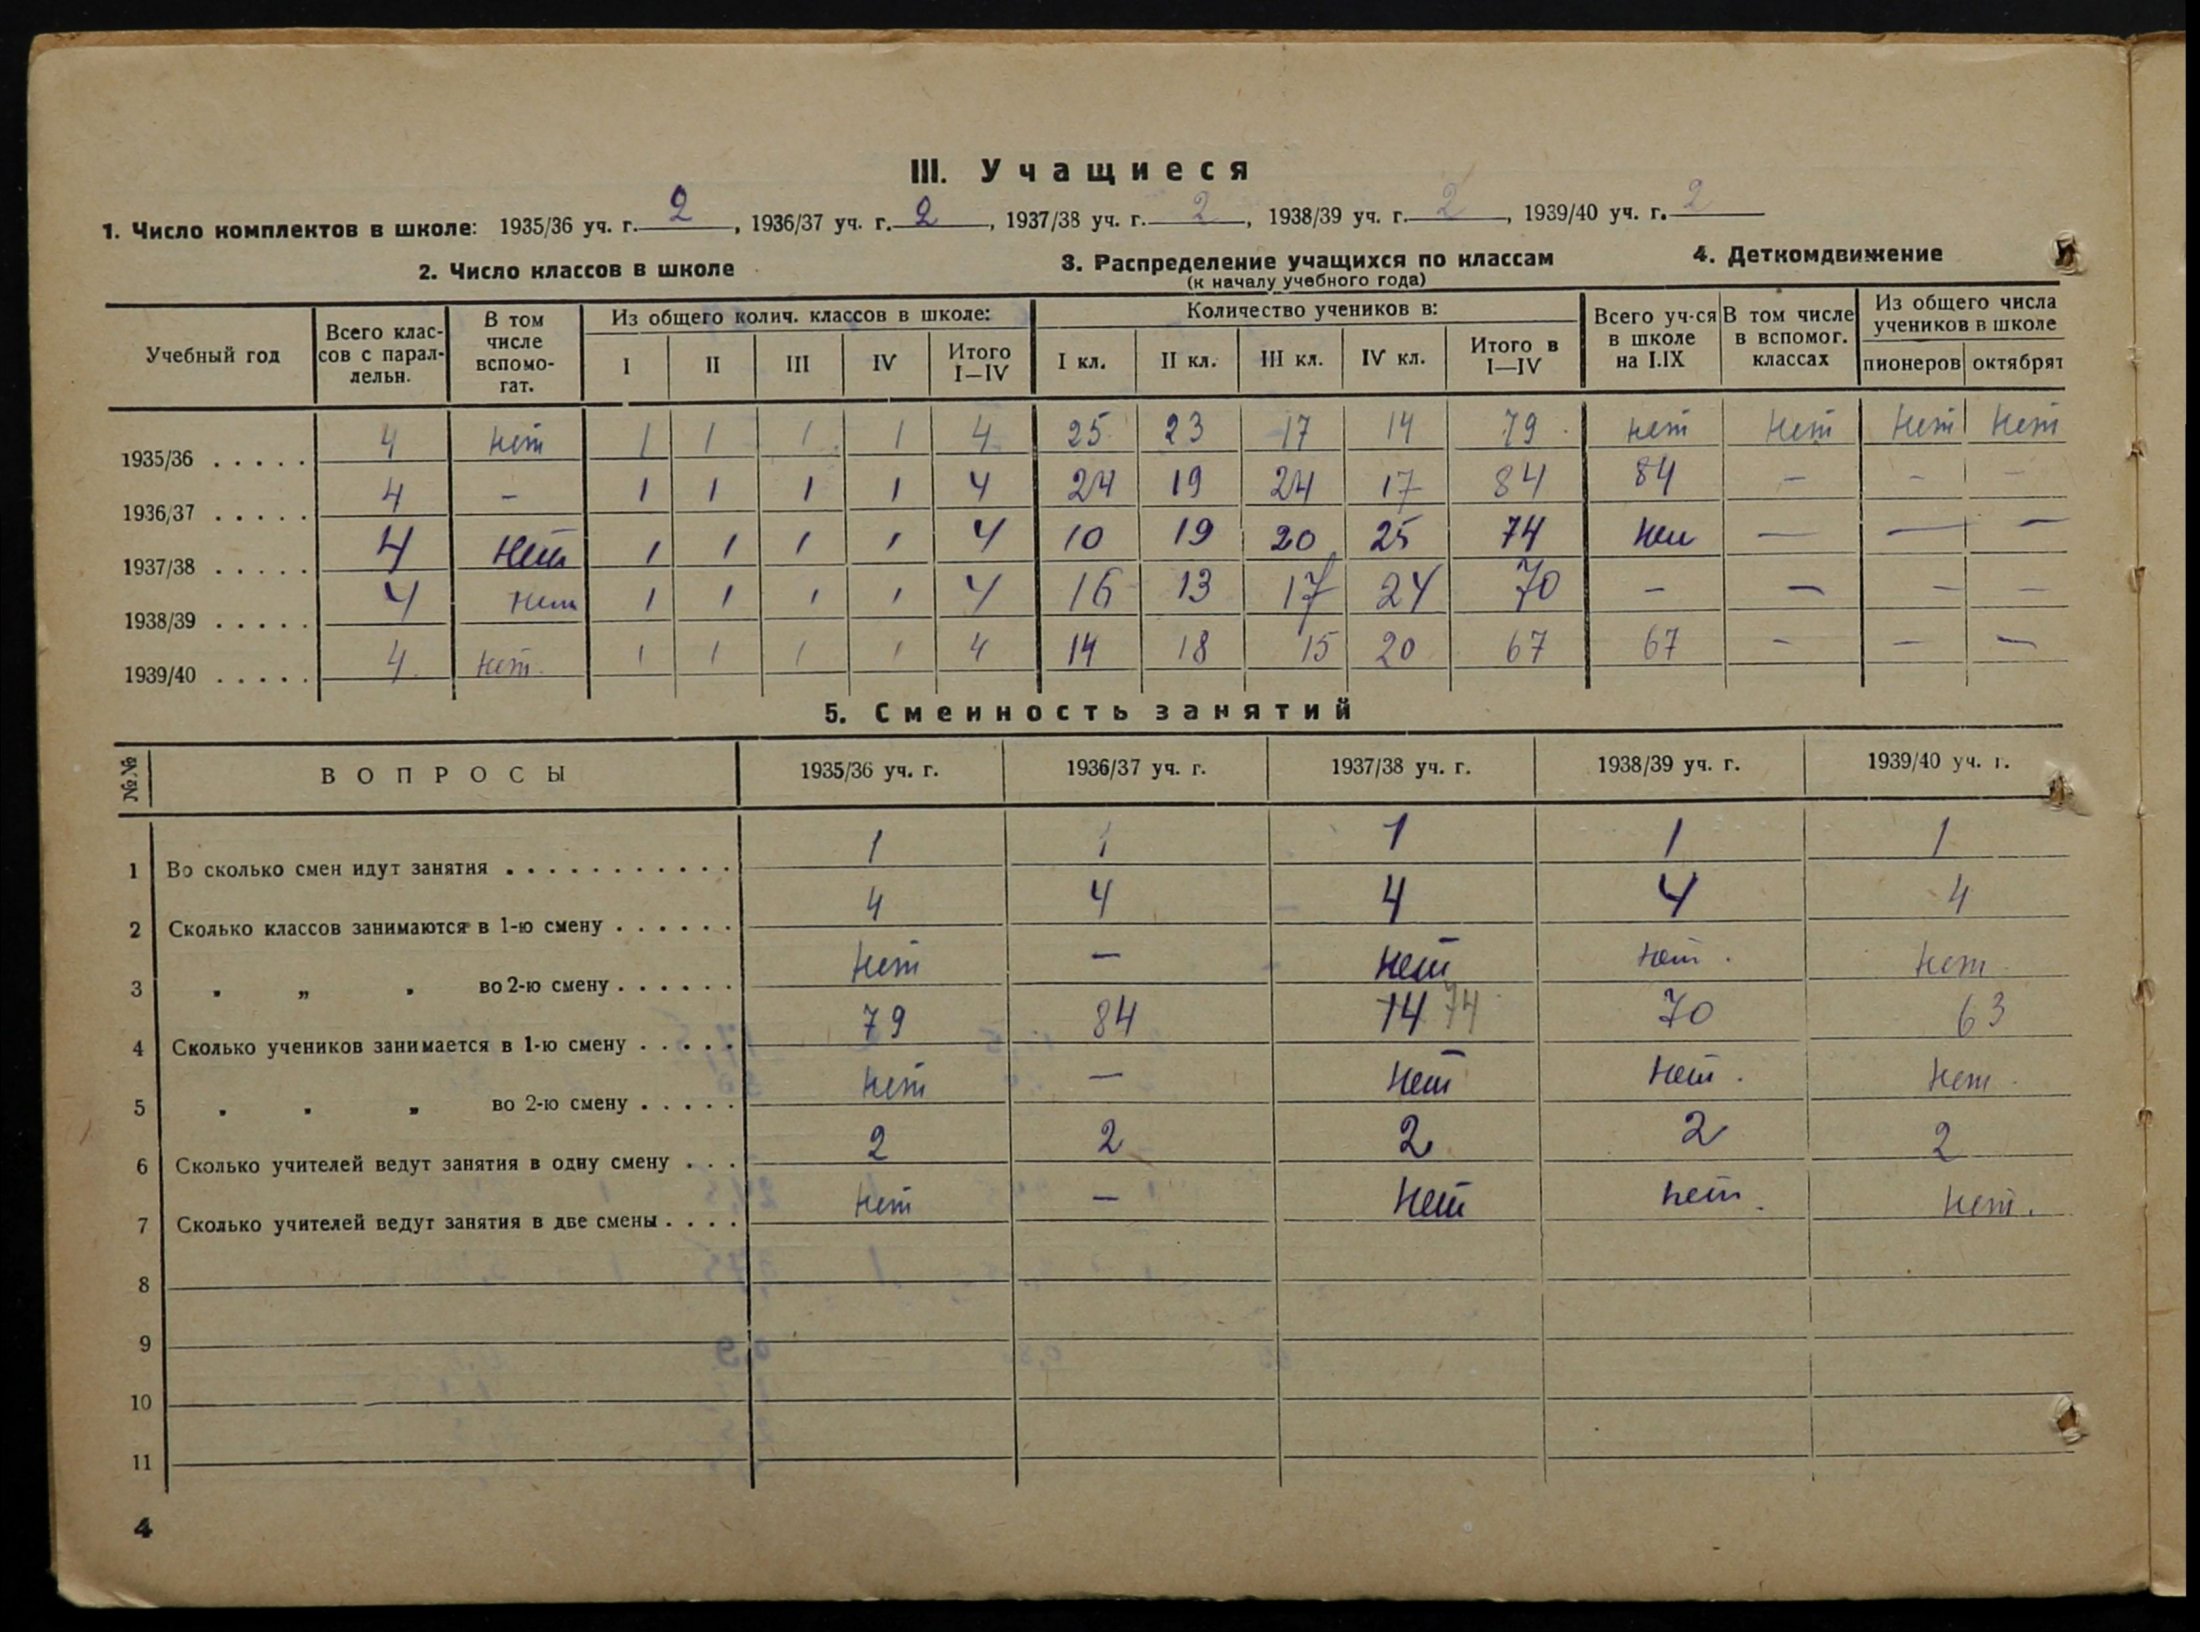 III. Учащиеся
1. Число комплектов в школе: 1935/36 уч. г. 2, 1936/37 уч. г. 2, 1937/38 уч. г. 2, 1938/39 уч. г. 2, 1939/40 уч. г. 2
2. Число классов в школе
3. Распределение учащихся по классам
(к началу учебного года)
4. Деткомдвижение
Учебный год
Всего клас-
сов с парал-
лельн.
В том
числе
вспомо-
гат.
Из общего колич. классов в школе:
I II III IV Итого
I—IV
Количество учеников в:
I кл. II кл. III кл. IV кл. Итого в
I—IV
Всего уч-ся
в школе
на I.IX
В том числе
в вспомог.
классах
Из общего числа
учеников в школе
пионеров октябрят
1935/36 . . . . . 4 нет 1 1 1 1 4 25 23 17 14 79 нет нет нет нет
1936/37 . . . . . 4 – 1 1 1 1 4 24 19 24 17 84 84 – – –
1937/38 . . . . . 4 нет 1 1 1 1 4 10 19 20 25 74 нет — — —
1938/39 . . . . . 4 нет 1 1 1 1 4 16 13 17 24 70 – – – –
1939/40 . . . . . 4 нет. 1 1 1 1 4 14 18 15 20 67 67 – – –
5. Сменность занятий
№№ ВОПРОСЫ 1935/36 уч. г. 1936/37 уч. г. 1937/38 уч. г. 1938/39 уч. г. 1939/40 уч. г.
1 Во сколько смен идут занятия . . . . . . . . . . . 1 1 1 1 1
2 Сколько классов занимаются в 1-ю смену . . . . . . 4 4 4 4 4
3 „ „ „ во 2-ю смену . . . . . . нет — нет нет. нет
4 Сколько учеников занимается в 1-ю смену . . . . . 79 84 74 74 70 63
5 „ „ „ во 2-ю смену . . . . . нет — нет нет. нет.
6 Сколько учителей ведут занятия в одну смену . . . 2 2 2 2 2
7 Сколько учителей ведут занятия в две смены . . . . нет — нет нет. нет.
8
9
10
11
4